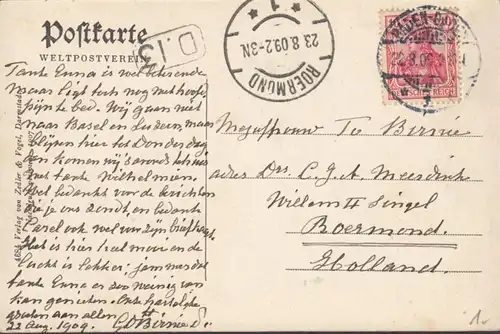 Postkarte
WELTPOSTVEREIN
D.13
ROERMOND
23.8.09.2-3N
1
BADEN-BADEN
DEUTSCHES REICH
Tante Enna is wel beterende
maar ligt toch nog met hoofd
pijn te bed. Wij gaan niet
naar Basel en Luzern, maar
blijven hier tot Donderdag
dan komen wij 's avonds
tante Wilhelmien.
Wel bedankt voor de berichten
die je ons zendt, en bedank
Karel ook wel voor zijn
Het is hier heel mooi en de
lucht is lekker; jammer dat
tante Enna er zoo weinig van
kan genieten. Onze hartelijke
groeten aan allen
22 Aug. 1909. G Birnie
Mejuffrouw To Birnie
adres Drs. C. J. A. Meerdink
Willem II Singel
Roermond.
Holland.
Verlag von Zedler & Vogel, Darmstadt